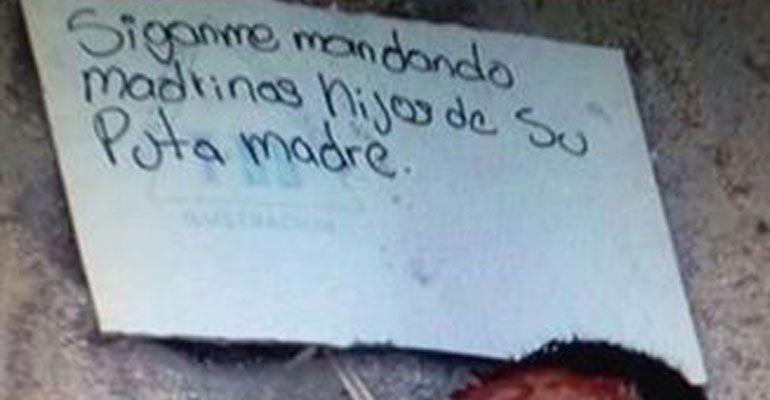 Siganme mandando
madrinas hijos de su
Puta madre.